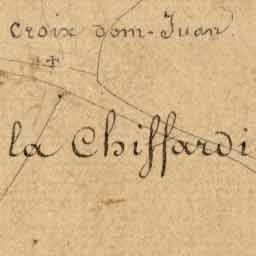 croix dom-Juan.
la Chiffardi